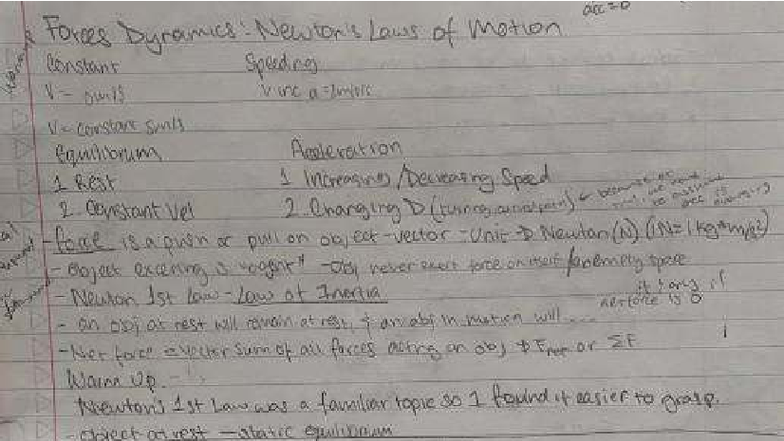 acc = 0
Forces Dynamics: Newton's Laws of Motion
Constant Speeding
V = 0m/s V inc a = 2m/s/s
V = constant 5m/s
Equilibrum Acceleration
1 Rest 1 Increasing/Decreasing Speed
2. Constant Vel 2. Changing D (turning, curved path) ← because of
to assume
acc is
- force is a push or pull on object - vector - Unit → Newton (N) (1N = 1kg*m/s²)
- Object exerting is "agent" - Obj never exert force on itself/an empty space
- Newton 1st Law - Law of Inertia
it & only if
net force is 0
- an obj at rest will remain at rest, & an obj in motion will....
- Net force = vector sum of all forces acting on obj → Fnet or ΣF
Warm Up
Newton's 1st Law was a familiar topic so I found it easier to grasp.
- object at rest - static equilibrium